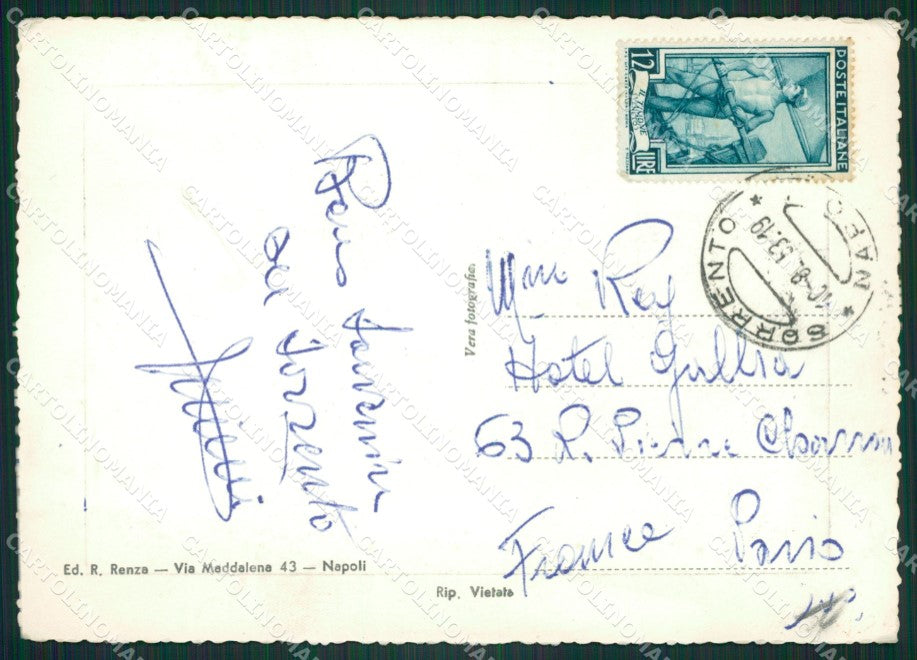 POSTE ITALIANE
12
LIRE
SORRENTO
NAPOLI
-8.53.19
Bons souvenirs
da Sorrento
Vera fotografia
Rey
Hotel Gallia
63 R. Pierre Charron
France Paris
Ed. R. Renza — Via Maddalena 43 — Napoli
Rip. Vietata
CARTOLINOMANIA